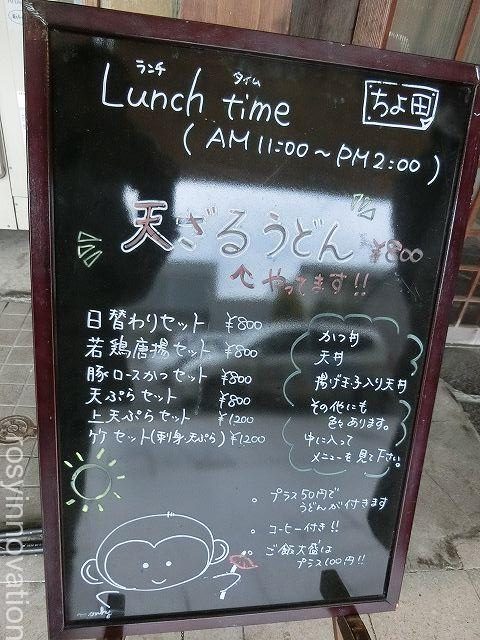 ランチ タイム
Lunch time
ちよ田
( AM 11:00 ~ PM 2:00 )
天ざるうどん ¥800
↑やってます!!
日替わりセット ¥800
若鶏唐揚セット ¥800
豚ロースかつセット ¥800
天ぷらセット ¥800
上天ぷらセット ¥1200
竹セット(刺身.天ぷら) ¥1200
かつ丼
天丼
揚げ玉子入り天丼
その他にも
色々あります。
中に入って
メニューを見て下さい。
。プラス50円で
うどんが付きます
。コーヒー付き!!
。ご飯大盛は
プラス100円!!
rosyinnovation